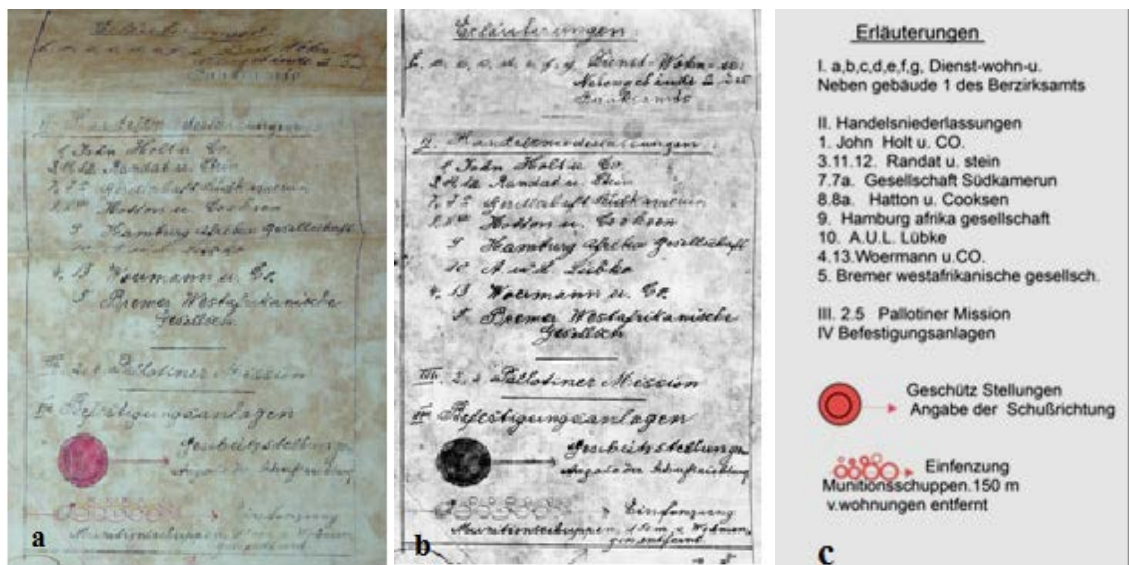 Erläuterungen
Wohn
II. Handelsniederlassungen
1 John Holt u. Co.
3.11.12 Randat u. Stein
7, 7a Gesellschaft Südkamerun
8.8a Hatton u. Cooksen
9 Hamburg Afrika Gesellschaft
4. 13 Woermann u. Co.
5 Bremer Westafrikanische
Gesellsch.
III. 2, 5 Pallotiner Mission
IV Befestigungsanlagen
Geschützstellungen
Angabe der Schußrichtung
Einfenzung
Munitionsschuppen, 150m v. Wohnun
gen entfernt
a
Erläuterungen
Dienst-Wohn-u.
Nebengebäude
II. Handelsniederlassungen
1 John Holt u. Co.
3.11.12 Randat u. Stein
7, 7a Gesellschaft Südkamerun
8.8a Hatton u. Cooksen
9 Hamburg Afrika Gesellschaft
10 A. u. L. Lübke
4. 13 Woermann u. Co.
5 Bremer Westafrikanische
Gesellsch
III. 2, 5 Pallotiner Mission
IV Befestigungsanlagen
Geschützstellungen
Angabe der Schußrichtung
Einfenzung
Munitionsschuppen, 150m v. Wohnun
gen entfernt
b
Erläuterungen
I. a,b,c,d,e,f,g, Dienst-wohn-u.
Neben gebäude 1 des Berzirksamts
II. Handelsniederlassungen
1. John Holt u. CO.
3.11.12. Randat u. stein
7.7a. Gesellschaft Südkamerun
8.8a. Hatton u. Cooksen
9. Hamburg afrika gesellschaft
10. A.U.L. Lübke
4.13.Woermann u.CO.
5. Bremer westafrikanische gesellsch.
III. 2.5 Pallotiner Mission
IV Befestigungsanlagen
Geschütz Stellungen
Angabe der Schußrichtung
Einfenzung
Munitionsschuppen.150 m
v.wohnungen entfernt
c